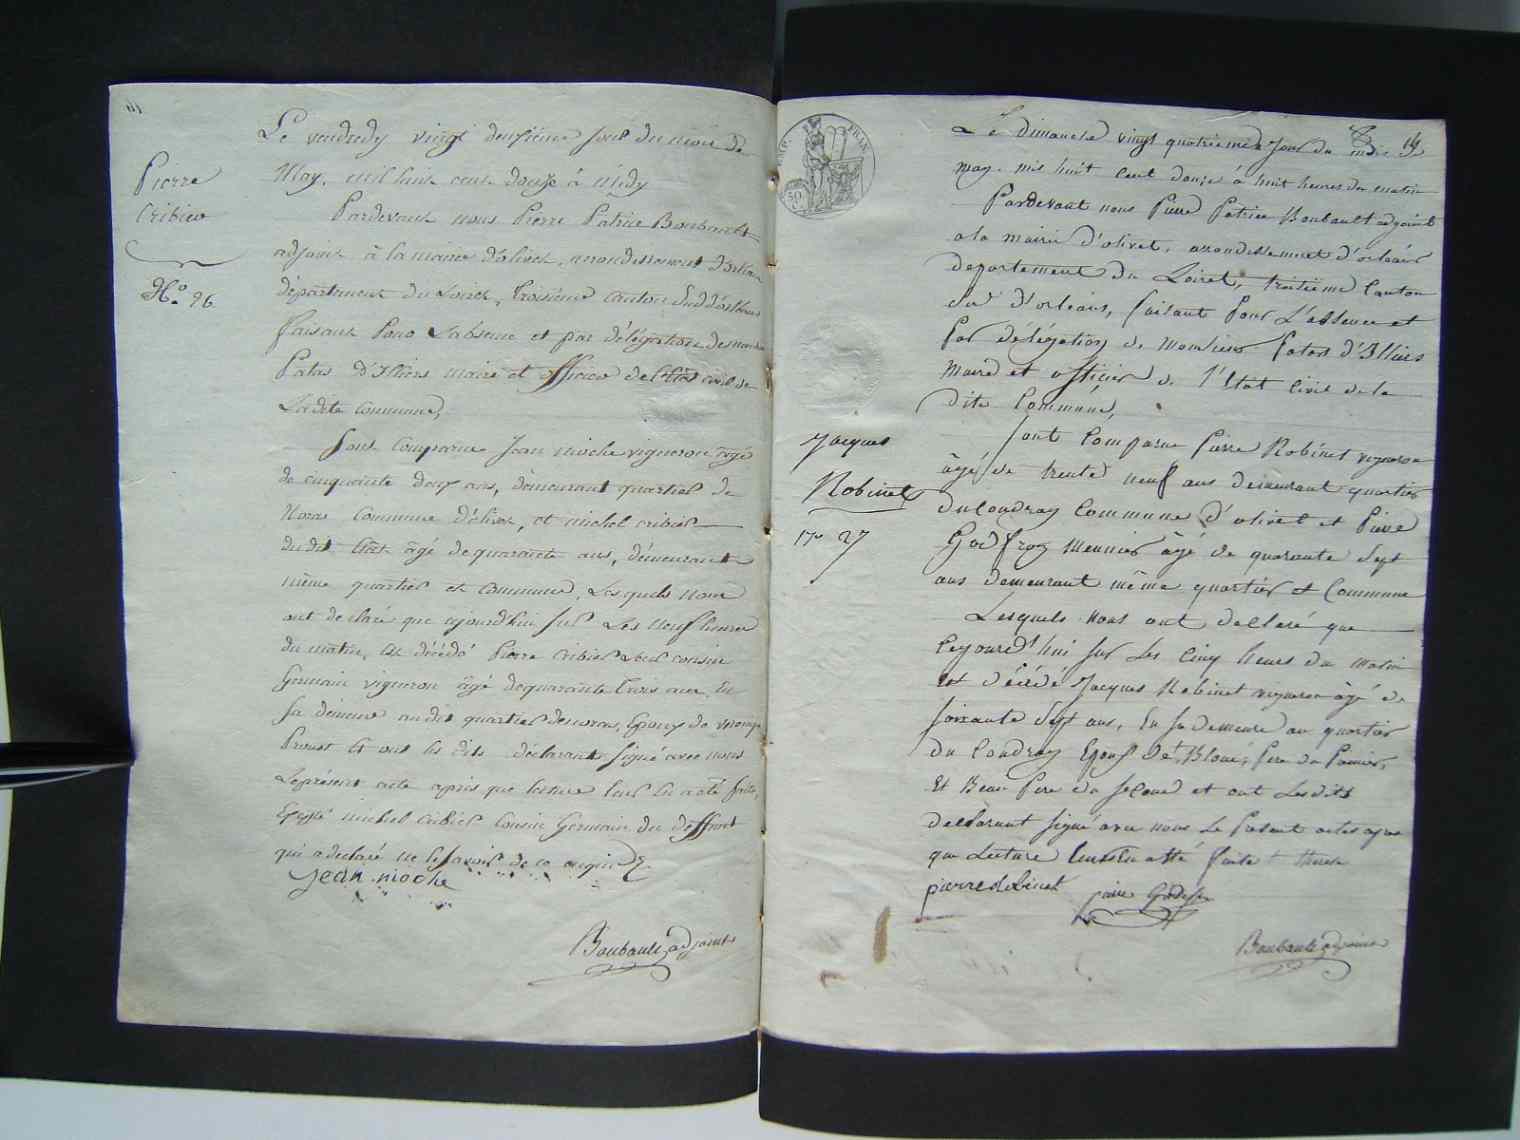 Pierre
Cribier
N.o 26
Le vendredy vingt deuxième jour du mois de
May, mil huit cent douze à Midy
Pardevant nous Pierre Patrice Boubault
adjoint à la mairie d'olivet, arrondissement d'orléans
département du Loiret, troisième canton Sud d'orléans
faisant pour l'absence et par délégation de monsieur
Patas d'Illiers maire et officier de l'État civil de
Ladite Commune,
Sont Comparus Jean mioche vigneron âgé
de cinquante deux ans, demeurant quartier de
Commune d'olivet, et michel cribier
dudit État âgé de quarante ans, demeurant
même quartier et commune, Lesquels nous
ont declaré que ajourd'hui sur Les neuf heures
du matin, est décédé Pierre cribier Leur cousin
Germain vigneron âgé de quarante trois ans, En
sa demeure audit quartier Epoux de
Et ont les dits déclarant signé avec nous
Leprésent acte après que lecture leur En a été faite,
Excepté michel cribier Cousin Germain du deffunt
qui a declaré ne le savoir de ce requis
jean mioche
Boubault adjoint
TIMP. FRAN.
50
Jacques
Robinet
No 27
Le dimanche vingt quatrieme Jour du
may mil huit Cent douze à huit heures du matin
Pardevant nous Pierre Patrice Boubault adjoint
a la mairie d'olivet, arrondissement d'orleans
departement du Loiret, troisieme Canton
sud d'orleans, faisant Pour L'absence et
Par délégation de Monsieur Patas d'Illiers
Maire et officier de l'État Civil de la
dite Commune,
Sont Comparu Pierre Robinet vigneron
âgé de trente neuf ans demeurant quartier
du Coudray Commune d'olivet et Pierre
Godfroy Meunier âgé de quarante Sept
ans demeurant même quartier et Commune
Lesquels nous ont declaré que
Cejourd'hui sur Les Cinq heures du matin
est décédé Jacques Robinet vigneron âgé de
soixante Sept ans, En sa demeure au quartier
du Coudray Epoux de Bloué, Pere du Premier,
Et Beau Pere du second et ont Lesdits
declarant signé avec nous Le Présent acte après
que Lecture leur En a été faite
pierre Robinet
Boubault adjoint